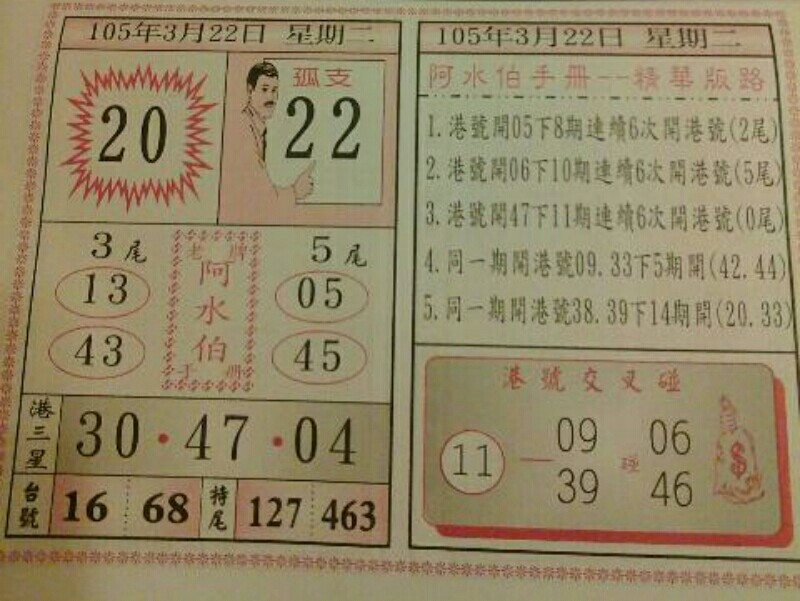 105年3月22日 星期二
20
孤支
22
3尾
13
43
老牌
阿水伯
手册
5尾
05
45
港三星
30·47·04
台號
16 68
特尾
127 463
105年3月22日 星期二
阿水伯手册--精華版路
1.港號開05下8期連續6次開港號(2尾)
2.港號開06下10期連續6次開港號(5尾)
3.港號開47下11期連續6次開港號(0尾)
4.同一期開港號09.33下5期開(42.44)
5.同一期開港號38.39下14期開(20.33)
港號交叉碰
11
09 06
碰
39 46
$